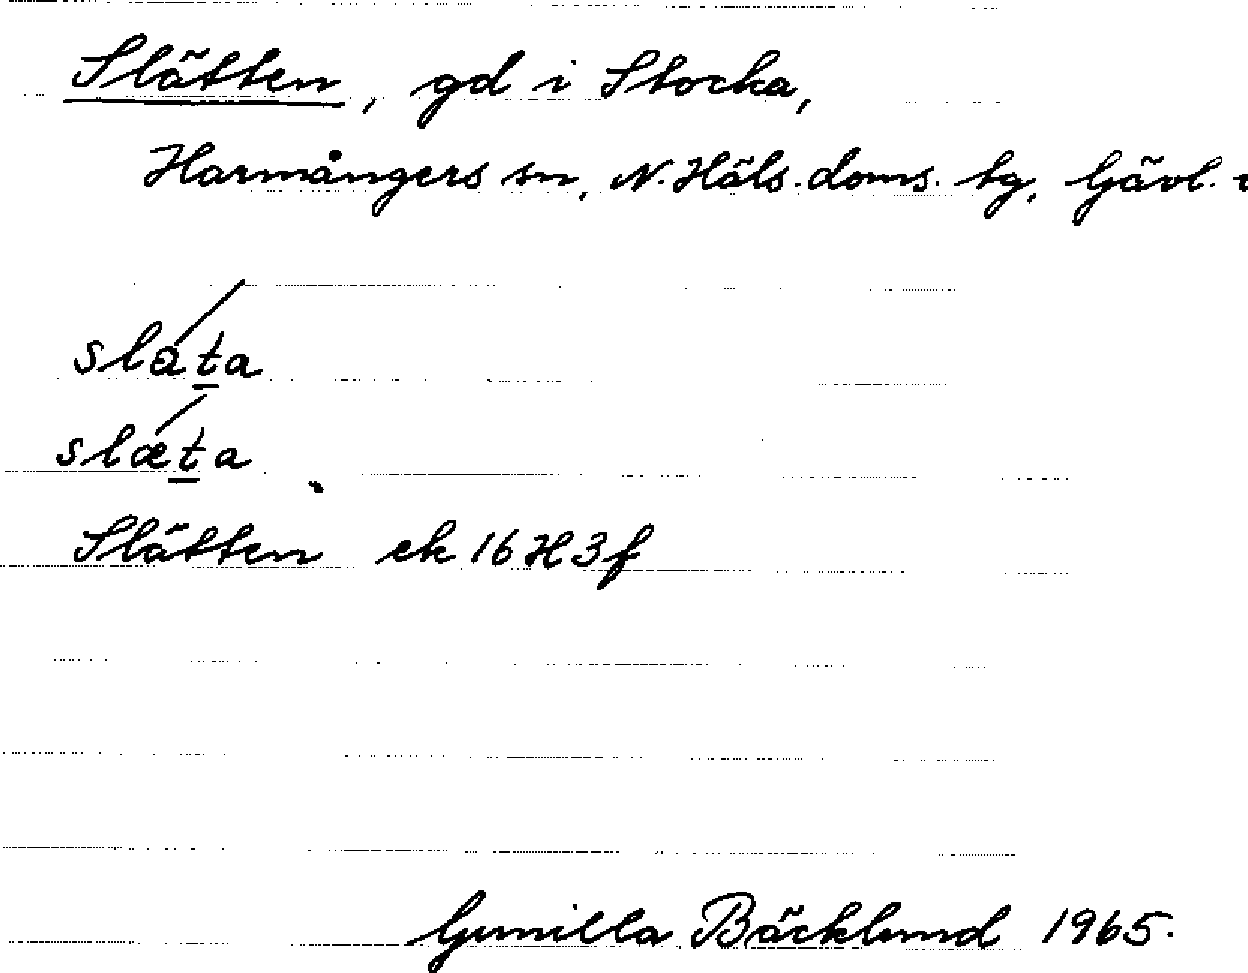 Slätten, gd i Stocka,
Harmångers sn, N. Häls. doms. tg, Gävl.
slata
slæta
Slätten ek 16 H 3 f
Gunilla Bäcklund 1965.